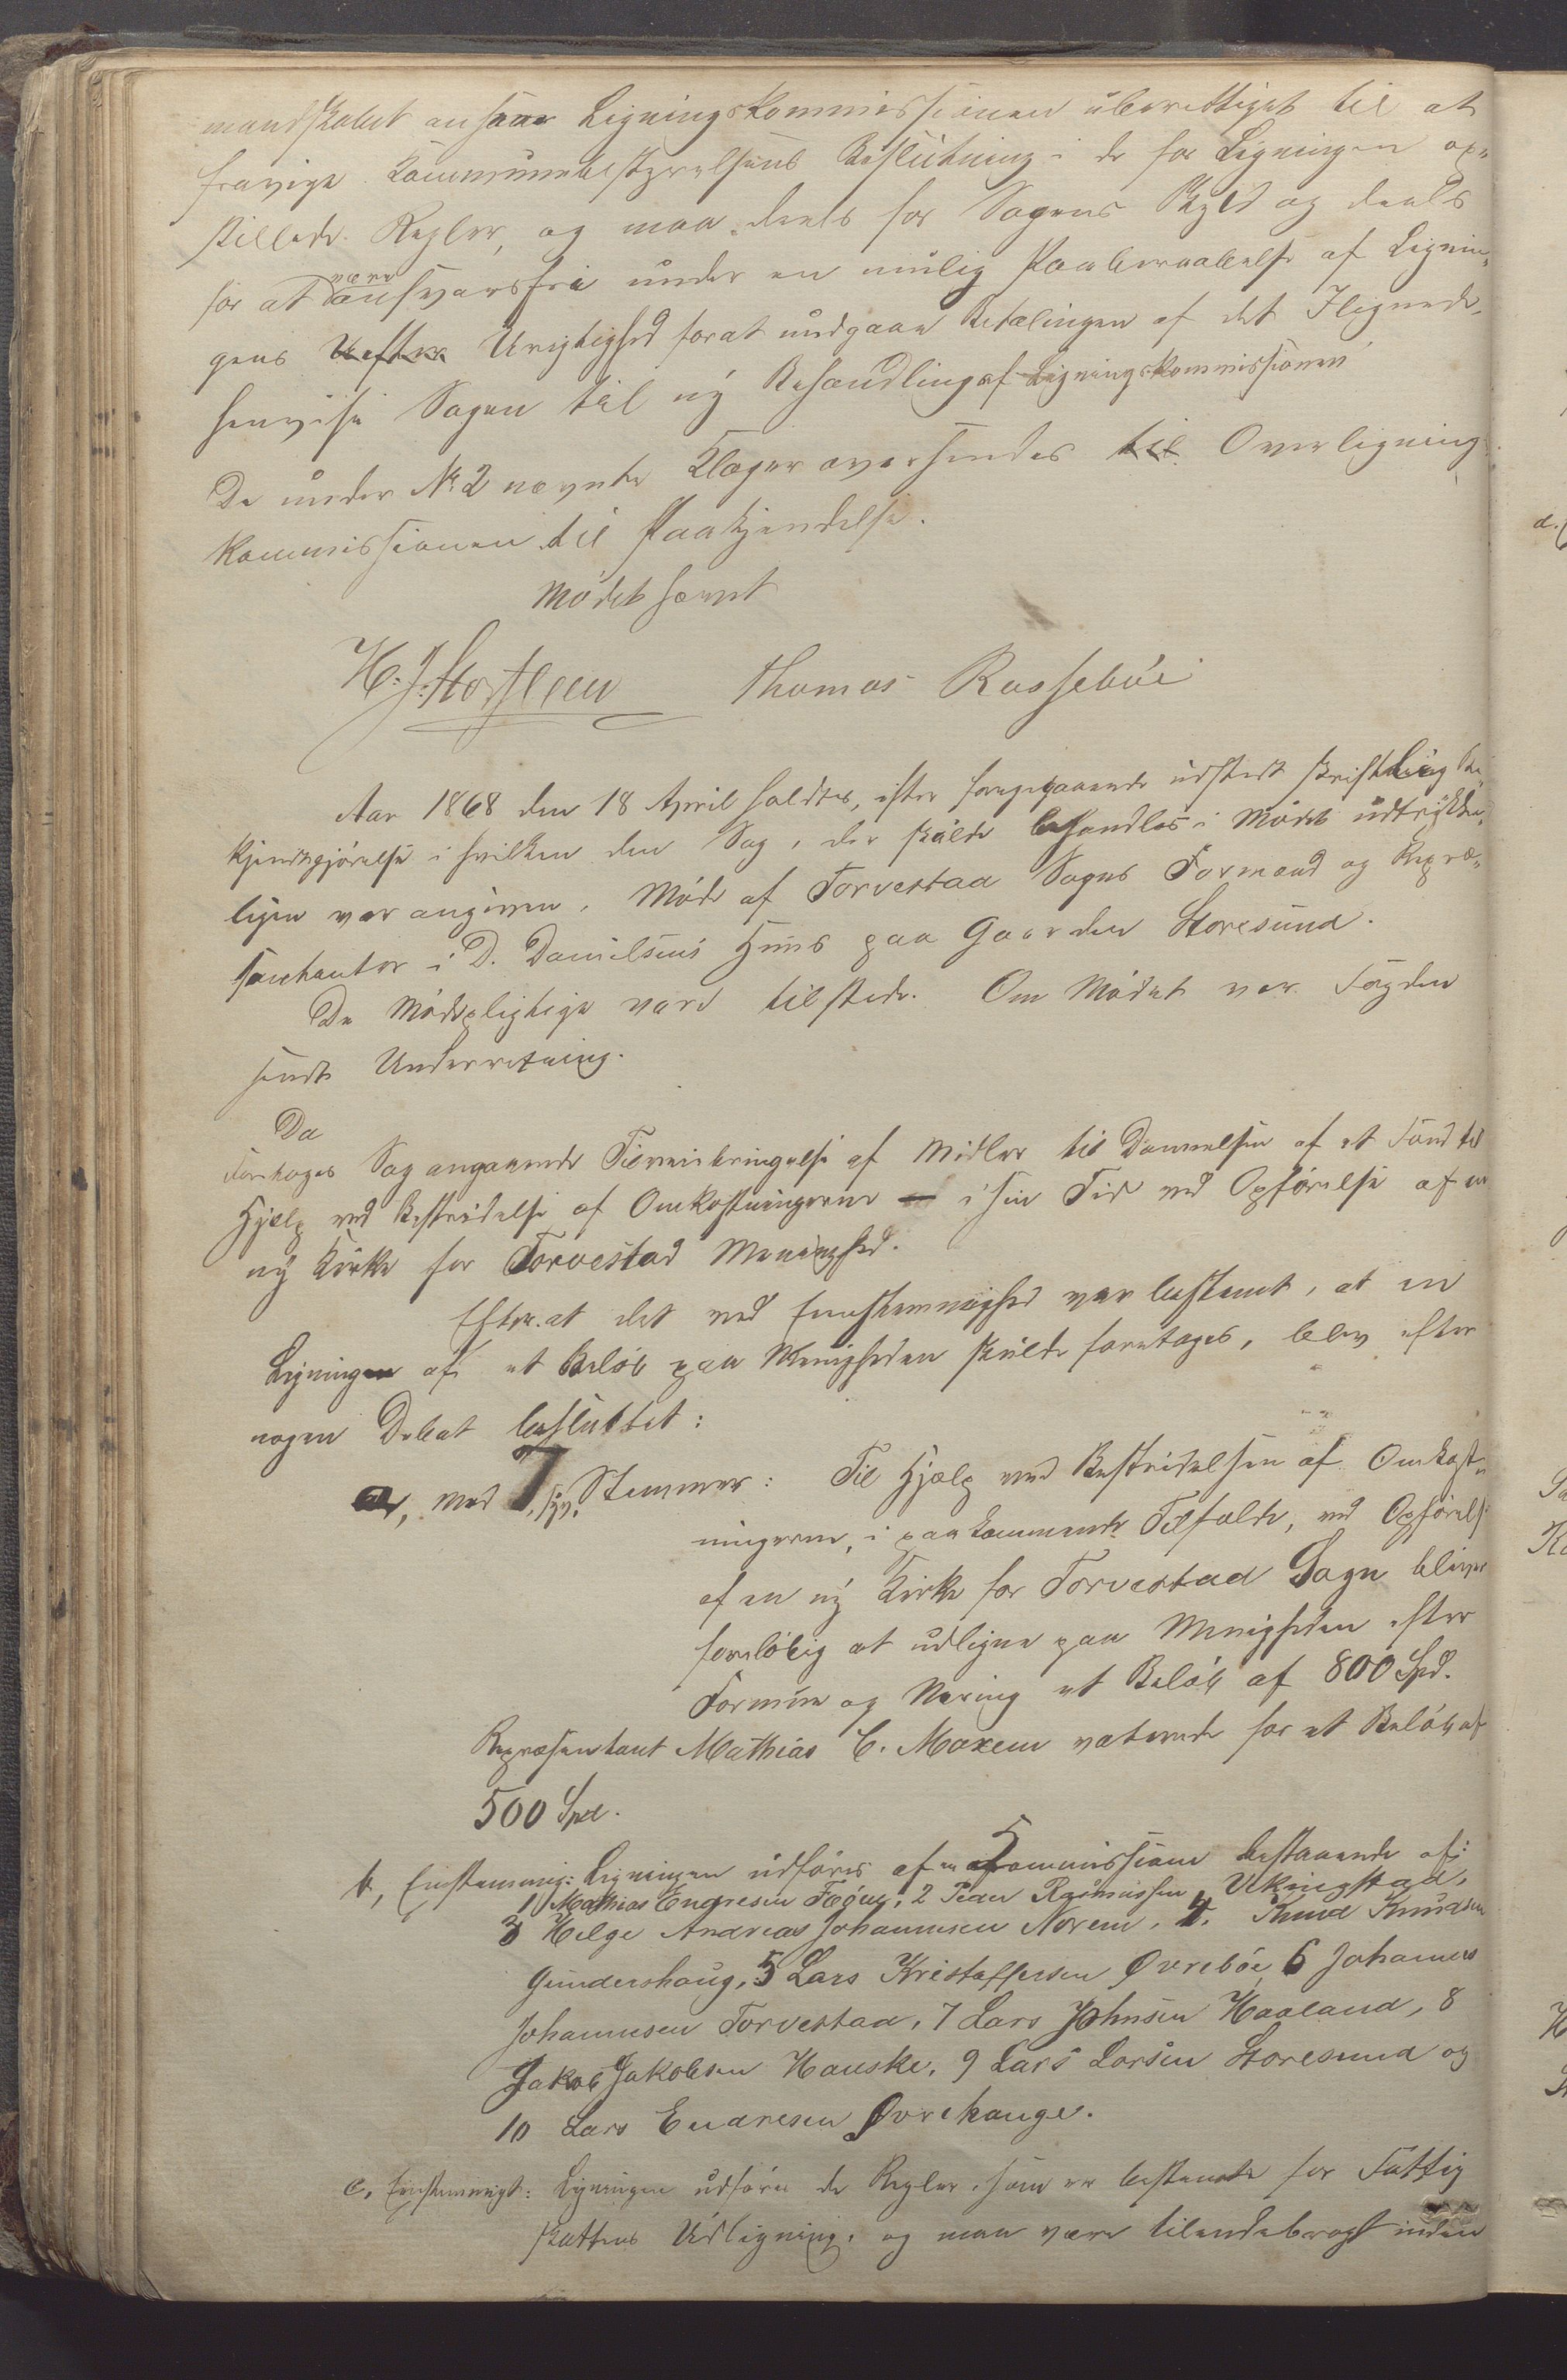 mandskabet anseer Ligningskommissionen uberettiget til at
fravige Kommunebestyrelsens Beslutning i de for Ligningen op-
stillede Regler, og maa deels for Sagens Skyld og deels
for at være ansvarsfri under en mulig Paaberaabelse af Lignin-
gens Urigtighed forat undgaae Betalingen af det Ilignede,
henvise Sagen til ny Behandling af Ligningskommissionen
De under No 2 nævnte Klager oversendes til Overligning
kommissionen til Paakjendelse.
Mødet hævet
H. J. Thomas Rossebøe
Aar 1868 den 18 April holdtes, efter foregaaende udstedt skriftlig Be-
kjendtgjørelse i hvilken den Sag, der skulde behandles i Mødet udtrykke-
ligen var angiven, Møde af Torvestad Sogns Formænd og Repræ-
sentanter i D. Danielsens Huus paa Gaarden Storesund.
De Mødepligtige vare tilstede. Om Mødet var Fogden
sendt Underretning.
Da
Foretoges Sag angaaende Tilveiebringelse af Midler til Dannelsen af et Fond til
Hjælp ved Bestridelse af Omkostningerne i sin Tid ved Opførelse af en
ny Kirke for Torvestad Menighed.
Efter at det ved Eenstemmighed var bestemt, at en
Ligning af et Beløb paa Menigheden skulde foretages, blev efter
nogen Debat besluttet:
a, med 7, syv, Stemmer: Til Hjælp ved Bestridelsen af Omkost-
ningerne, i paakommende Tilfælde, ved Opførelse
af en ny Kirke for Torvestad Sogn bliver
foreløbig at udligne paa Menigheden efter
Formue og Næring et Beløb af 800 Spd.
Repræsentant Mathias C. Moxem voterede for et Beløb af
500 Spd.
b, Eenstemmig: Ligningen udføres af en Kommission bestaaende af:
1 Mathias Endresen Fæøen, 2 Peder Rasmussen Vikingstad,
3 Helge Andreas Johannesen Norem, 4. Knud Knudsen
Gundershaug, 5 Lars Kristoffersen Øvrebøe, 6 Johannes
Johannesen Torvestad, 7 Lars Johnsen Haaland, 8
Jakob Jakobsen Hauske, 9 Lars Larsen Storesund og
10 Lars Endresen Øvrehauge.
c, Eenstemmigt: Ligningen udføres de Regler, som er bestemte for Fattig
skattens Udligning, og maa være tilendebragt inden